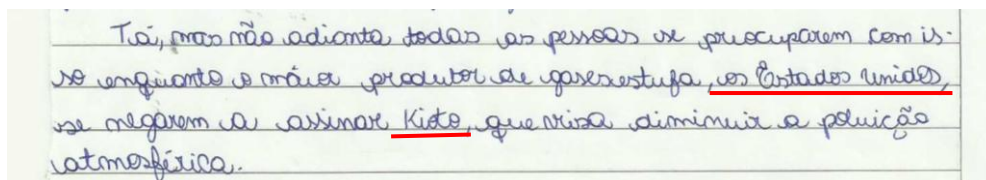 Tá, mas não adianta todas as pessoas se preocuparem com is-
so enquanto o maior produtor de gases estufa, os Estados Unidos,
se negarem a assinar Kioto, que visa diminuir a poluição
atmosférica.